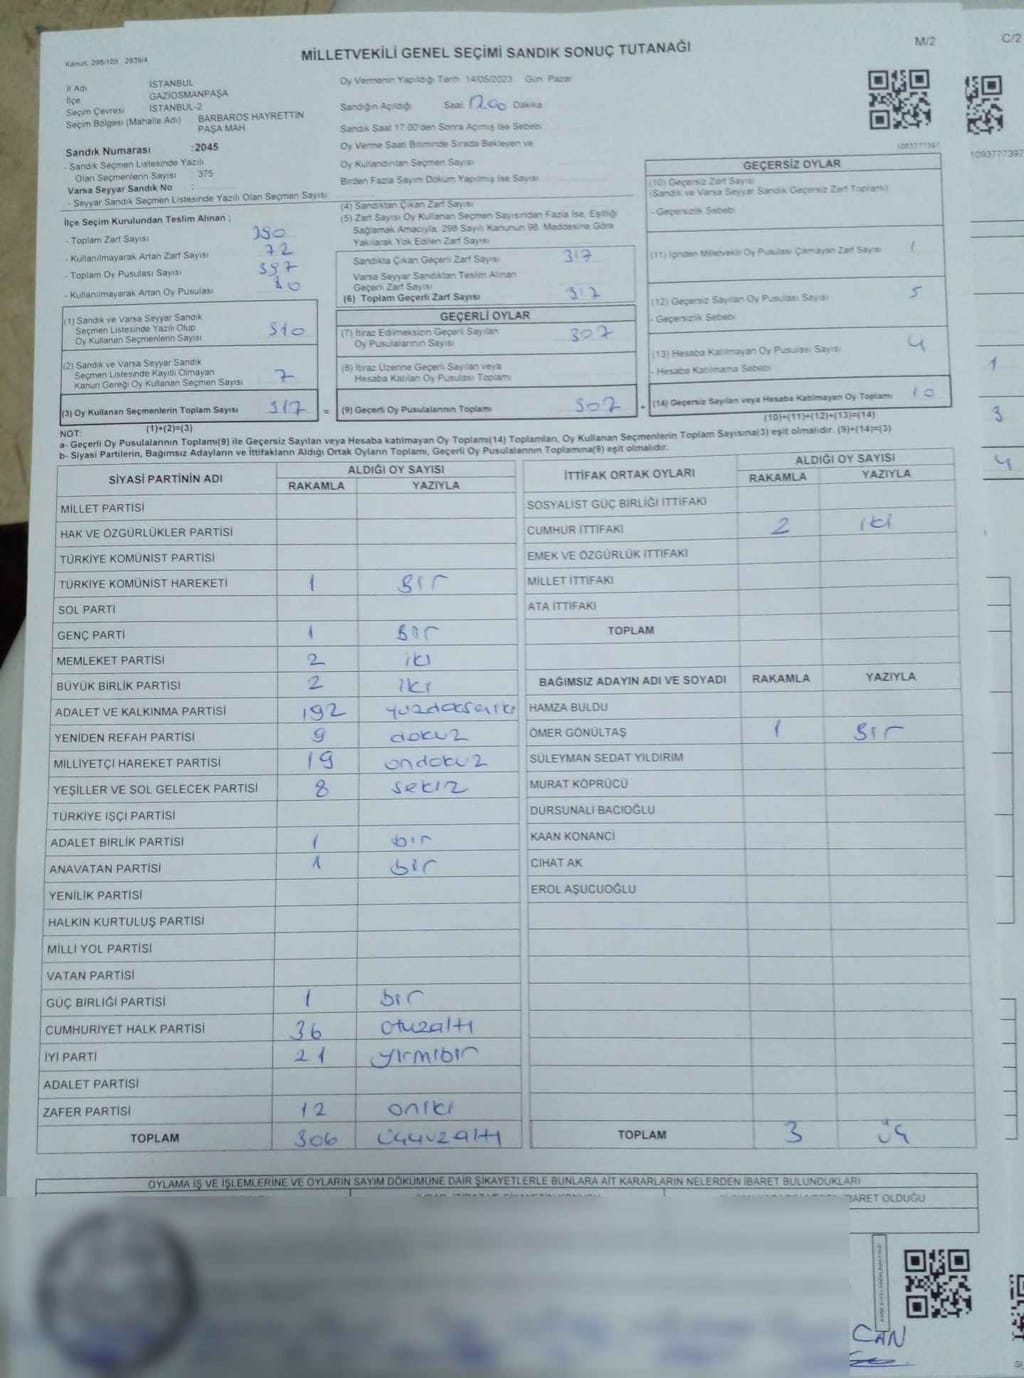 Kanun 298/105 2839/4
M/2
C/2
MİLLETVEKİLİ GENEL SEÇİMİ SANDIK SONUÇ TUTANAĞI
İl Adı İSTANBUL
İlçe GAZİOSMANPAŞA
Seçim Çevresi İSTANBUL-2
Seçim Bölgesi (Mahalle Adı) : BARBAROS HAYRETTİN PAŞA MAH
Sandık Numarası :2045
- Sandık Seçmen Listesinde Yazılı
Olan Seçmenlerin Sayısı : 375
Varsa Seyyar Sandık No :
- Seyyar Sandık Seçmen Listesinde Yazılı Olan Seçmen Sayısı
Oy Vermenin Yapıldığı Tarih 14/05/2023 Gün Pazar
Sandığın Açıldığı Saat 17.00 Dakika
Sandık Saat 17:00'den Sonra Açılmış İse Sebebi
Oy Verme Saati Bitiminde Sırada Bekleyen ve
Oy Kullandırılan Seçmen Sayısı
Birden Fazla Sayım Döküm Yapılmış İse Sayısı
1093777397
İlçe Seçim Kurulundan Teslim Alınan ;
- Toplam Zarf Sayısı 390
- Kullanılmayarak Artan Zarf Sayısı 72
- Toplam Oy Pusulası Sayısı 397
- Kullanılmayarak Artan Oy Pusulası 80
(1) Sandık ve Varsa Seyyar Sandık
Seçmen Listesinde Yazılı Olup
Oy Kullanan Seçmenlerin Sayısı 310
(2) Sandık ve Varsa Seyyar Sandık
Seçmen Listesinde Kayıtlı Olmayan
Kanun Gereği Oy Kullanan Seçmen Sayısı 7
(3) Oy Kullanan Seçmenlerin Toplam Sayısı 317
(1)+(2)=(3)
(4) Sandıktan Çıkan Zarf Sayısı
(5) Zarf Sayısı Oy Kullanan Seçmen Sayısından Fazla İse, Eşitliği
Sağlamak Amacıyla, 298 Sayılı Kanunun 98. Maddesine Göre
Yakılarak Yok Edilen Zarf Sayısı
Sandıkta Çıkan Geçerli Zarf Sayısı 317
Varsa Seyyar Sandıktan Teslim Alınan
Geçerli Zarf Sayısı
(6) Toplam Geçerli Zarf Sayısı 317
GEÇERLİ OYLAR
(7) İtiraz Edilmeksizin Geçerli Sayılan
Oy Pusulalarının Sayısı 307
(8) İtiraz Üzerine Geçerli Sayılan veya
Hesaba Katılan Oy Pusulası Toplamı
= (9) Geçerli Oy Pusulalarının Toplamı 307
GEÇERSİZ OYLAR
(10) Geçersiz Zarf Sayısı
(Sandık ve Varsa Seyyar Sandık Geçersiz Zarf Toplamı)
- Geçersizlik Sebebi
(11) İçinden Milletvekili Oy Pusulası Çıkmayan Zarf Sayısı 1
(12) Geçersiz Sayılan Oy Pusulası Sayısı 5
- Geçersizlik Sebebi
(13) Hesaba Katılmayan Oy Pusulası Sayısı 4
- Hesaba Katılmama Sebebi
+ (14) Geçersiz Sayılan veya Hesaba Katılmayan Oy Toplamı 10
(10)+(11)+(12)+(13)=(14)
NOT:
a- Geçerli Oy Pusulalarının Toplamı(9) ile Geçersiz Sayılan veya Hesaba katılmayan Oy Toplamı(14) Toplamları, Oy Kullanan Seçmenlerin Toplam Sayısına(3) eşit olmalıdır. (9)+(14)=(3)
b- Siyasi Partilerin, Bağımsız Adayların ve İttifakların Aldığı Ortak Oyların Toplamı, Geçerli Oy Pusulalarının Toplamına(9) eşit olmalıdır.
SİYASİ PARTİNİN ADI ALDIĞI OY SAYISI
RAKAMLA YAZIYLA
MİLLET PARTİSİ
HAK VE ÖZGÜRLÜKLER PARTİSİ
TÜRKİYE KOMÜNİST PARTİSİ
TÜRKİYE KOMÜNİST HAREKETİ 1 Bir
SOL PARTİ
GENÇ PARTİ 1 Bir
MEMLEKET PARTİSİ 2 iki
BÜYÜK BİRLİK PARTİSİ 2 iki
ADALET VE KALKINMA PARTİSİ 192 yüzdoksaniki
YENİDEN REFAH PARTİSİ 9 dokuz
MİLLİYETÇİ HAREKET PARTİSİ 19 ondokuz
YEŞİLLER VE SOL GELECEK PARTİSİ 8 sekiz
TÜRKİYE İŞÇİ PARTİSİ
ADALET BİRLİK PARTİSİ 1 bir
ANAVATAN PARTİSİ 1 bir
YENİLİK PARTİSİ
HALKIN KURTULUŞ PARTİSİ
MİLLİ YOL PARTİSİ
VATAN PARTİSİ
GÜÇ BİRLİĞİ PARTİSİ 1 bir
CUMHURİYET HALK PARTİSİ 36 otuzaltı
İYİ PARTİ 21 yirmibir
ADALET PARTİSİ
ZAFER PARTİSİ 12 oniki
TOPLAM 306 üçyüzaltı
İTTİFAK ORTAK OYLARI ALDIĞI OY SAYISI
RAKAMLA YAZIYLA
SOSYALİST GÜÇ BİRLİĞİ İTTİFAKI
CUMHUR İTTİFAKI 2 iki
EMEK VE ÖZGÜRLÜK İTTİFAKI
MİLLET İTTİFAKI
ATA İTTİFAKI
TOPLAM
BAĞIMSIZ ADAYIN ADI VE SOYADI RAKAMLA YAZIYLA
HAMZA BULDU
ÖMER GÖNÜLTAŞ 1 Bir
SÜLEYMAN SEDAT YILDIRIM
MURAT KÖPRÜCÜ
DURSUNALİ BACIOĞLU
KAAN KONANCI
CİHAT AK
EROL AŞUCUOĞLU
TOPLAM 3 üç
1093777397
1
3
4
OYLAMA İŞ VE İŞLEMLERİNE VE OYLARIN SAYIM DÖKÜMÜNE DAİR ŞİKAYETLERLE BUNLARA AİT KARARLARIN NELERDEN İBARET BULUNDUKLARI
İBARET OLDUĞU
CAN